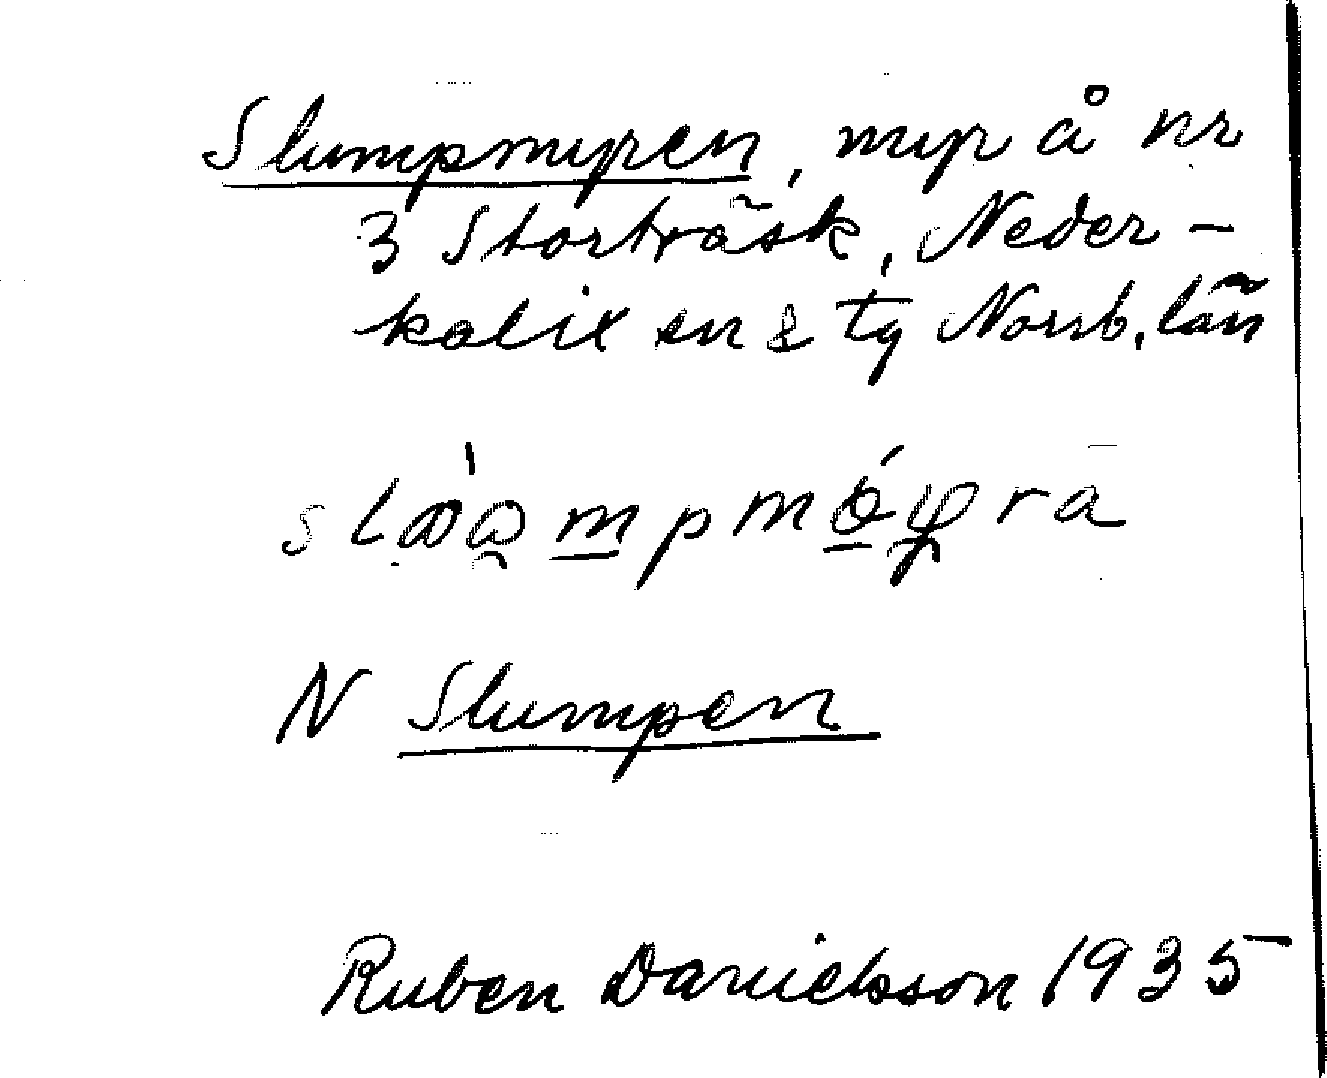 Slumpmyren, myr å nr
3 Storträsk, Neder-
kalix sn & tg Norrb. län
slɷ̀ɷmpmǿyra
N Slumpen
Ruben Danielsson 1935